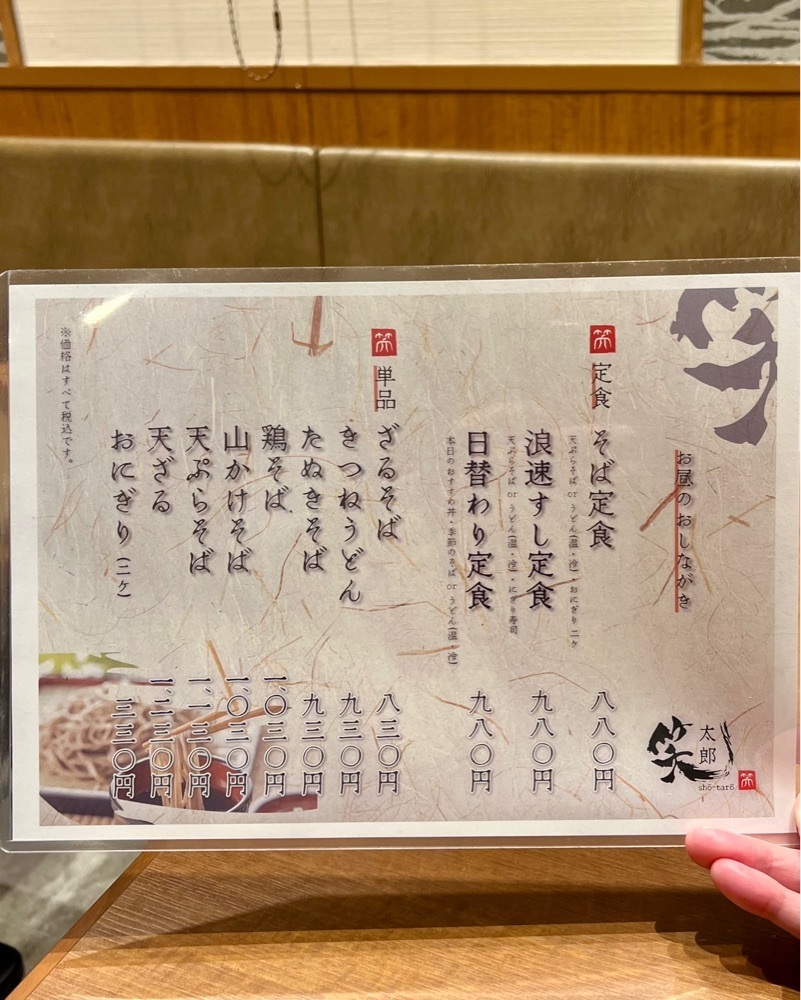 お昼のおしながき
笑
定食
そば定食
八八〇円
天ぷらそば or うどん(温・冷)・おにぎり 二ケ
浪速すし定食
九八〇円
天ぷらそば or うどん(温・冷)・にぎり寿司
日替わり定食
九八〇円
本日のおすすめ丼・季節のそば or うどん(温・冷)
笑
単品
ざるそば
八三〇円
きつねうどん
九三〇円
たぬきそば
九三〇円
鶏そば
一、〇三〇円
山かけそば
一、〇三〇円
天ぷらそば
一、一三〇円
天ざる
一、二三〇円
おにぎり(二ケ)
三三〇円
※価格はすべて税込です。
笑太郎
shō-tarō
笑